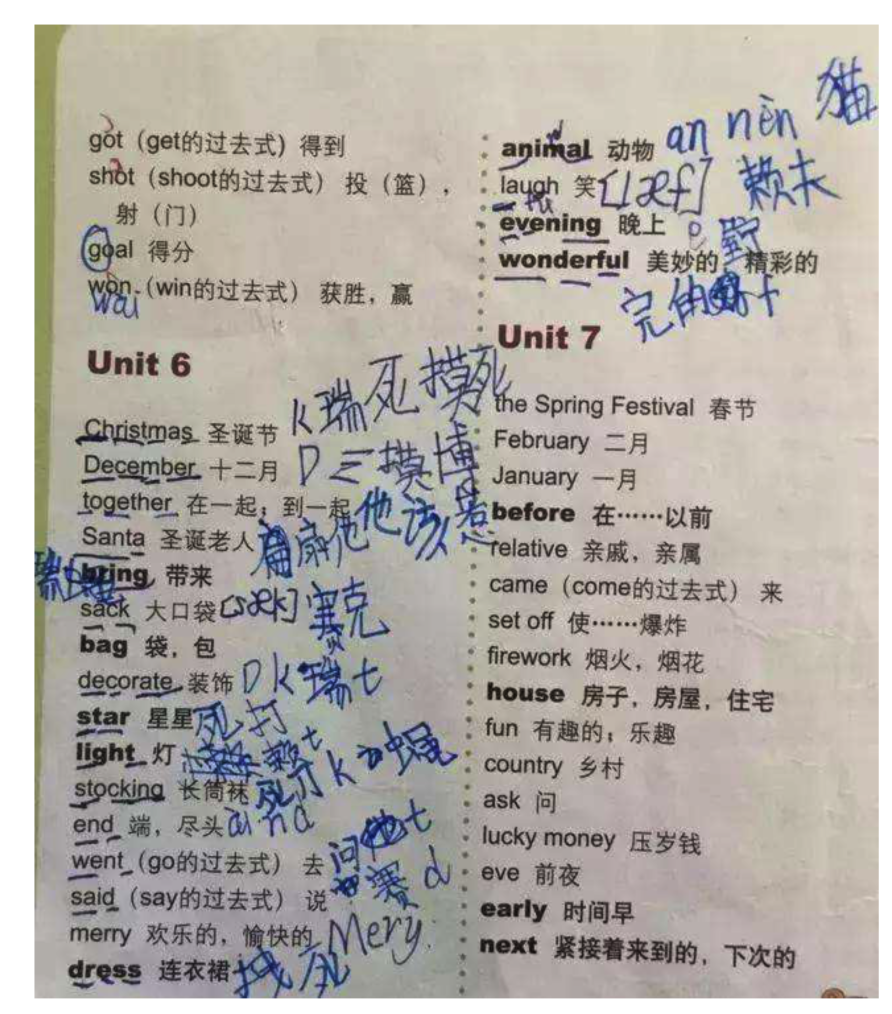 got (get的过去式) 得到
shot (shoot的过去式) 投（篮），
射（门）
goal 得分
won (win的过去式) 获胜，赢
wai
Unit 6
Christmas 圣诞节 K瑞死摸死
December 十二月 D三摸博
together 在一起；到一起
Santa 圣诞老人 扇他 他该若
bring 带来
sack 大口袋 [sæk] 赛克
bag 袋，包
decorate 装饰 D K瑞t
star 星星 死打
light 灯 赖t
stocking 长筒袜 死打K
end 端，尽头 aind
went (go的过去式) 去 问t
said (say的过去式) 说 赛d
merry 欢乐的，愉快的 Mery
dress 连衣裙
animal 动物 an nèn 猫
laugh 笑 [læf] 赖夫
evening 晚上
wonderful 美妙的，精彩的
Unit 7
the Spring Festival 春节
February 二月
January 一月
before 在……以前
relative 亲戚，亲属
came (come的过去式) 来
set off 使……爆炸
firework 烟火，烟花
house 房子，房屋，住宅
fun 有趣的；乐趣
country 乡村
ask 问
lucky money 压岁钱
eve 前夜
early 时间早
next 紧接着来到的，下次的